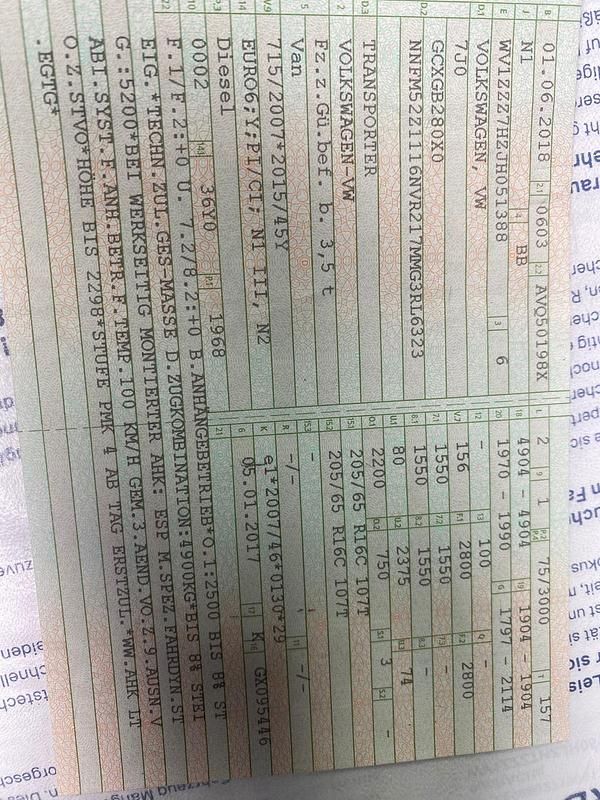 B 01.06.2018 2.1 0603 2.2 AVQ50198X
J N1 4 BB
E WV1ZZZ7HZJH051388 3 6
D.1 VOLKSWAGEN, VW
7J0
D.2 GCXGB280X0
NNFM52Z1116NVR217MMG3RL6323
D.3 TRANSPORTER
2 VOLKSWAGEN-VW
Fz.z.Gü.bef. b. 3,5 t
5 Van
V.9 715/2007*2015/45Y
14 EURO6;Y;PI/CI; N1 III, N2
P.3 Diesel
10 0002 14.1 36Y0 P.1 1968
L 2 9 1 P.2 P.4 75/3000 T 157
18 4904 - 4904 19 1904 - 1904
20 1970 - 1990 G 1797 - 2114
12 - 13 100 Q -
V.7 156 F.1 2800 F.2 2800
7.1 1550 7.2 1550 7.3 -
8.1 1550 8.2 1550 8.3 -
U.1 80 U.2 2375 U.3 74
O.1 2200 O.2 750 S.1 3 S.2 -
15.1 205/65 R16C 107T
15.2 205/65 R16C 107T
15.3 -
R -/- 11 -/-
K e1*2007/46*0130*29
6 05.01.2017 17 K 16 GX095446
21
22 F.1/F.2:+0 U. 7.2/8.2:+0 B.ANHÄNGEBETRIEB*O.1:2500 BIS 8% ST
EIG.*TECHN.ZUL.GES-MASSE D.ZUGKOMBINATION:4900KG*BIS 8% STEI
G.:5200*BEI WERKSEITIG MONTIERTER AHK: ESP M.SPEZ.FAHRDYN.ST
ABI.SYST.F.ANH.BETR.F.TEMP.100 KM/H GEM.3.AEND.VO.Z.9.AUSN.V
O.Z.STVO*HÖHE BIS 2298*STUFE PMK 4 AB TAG ERSTZUL.*WW.AHK LT
.EGTG*